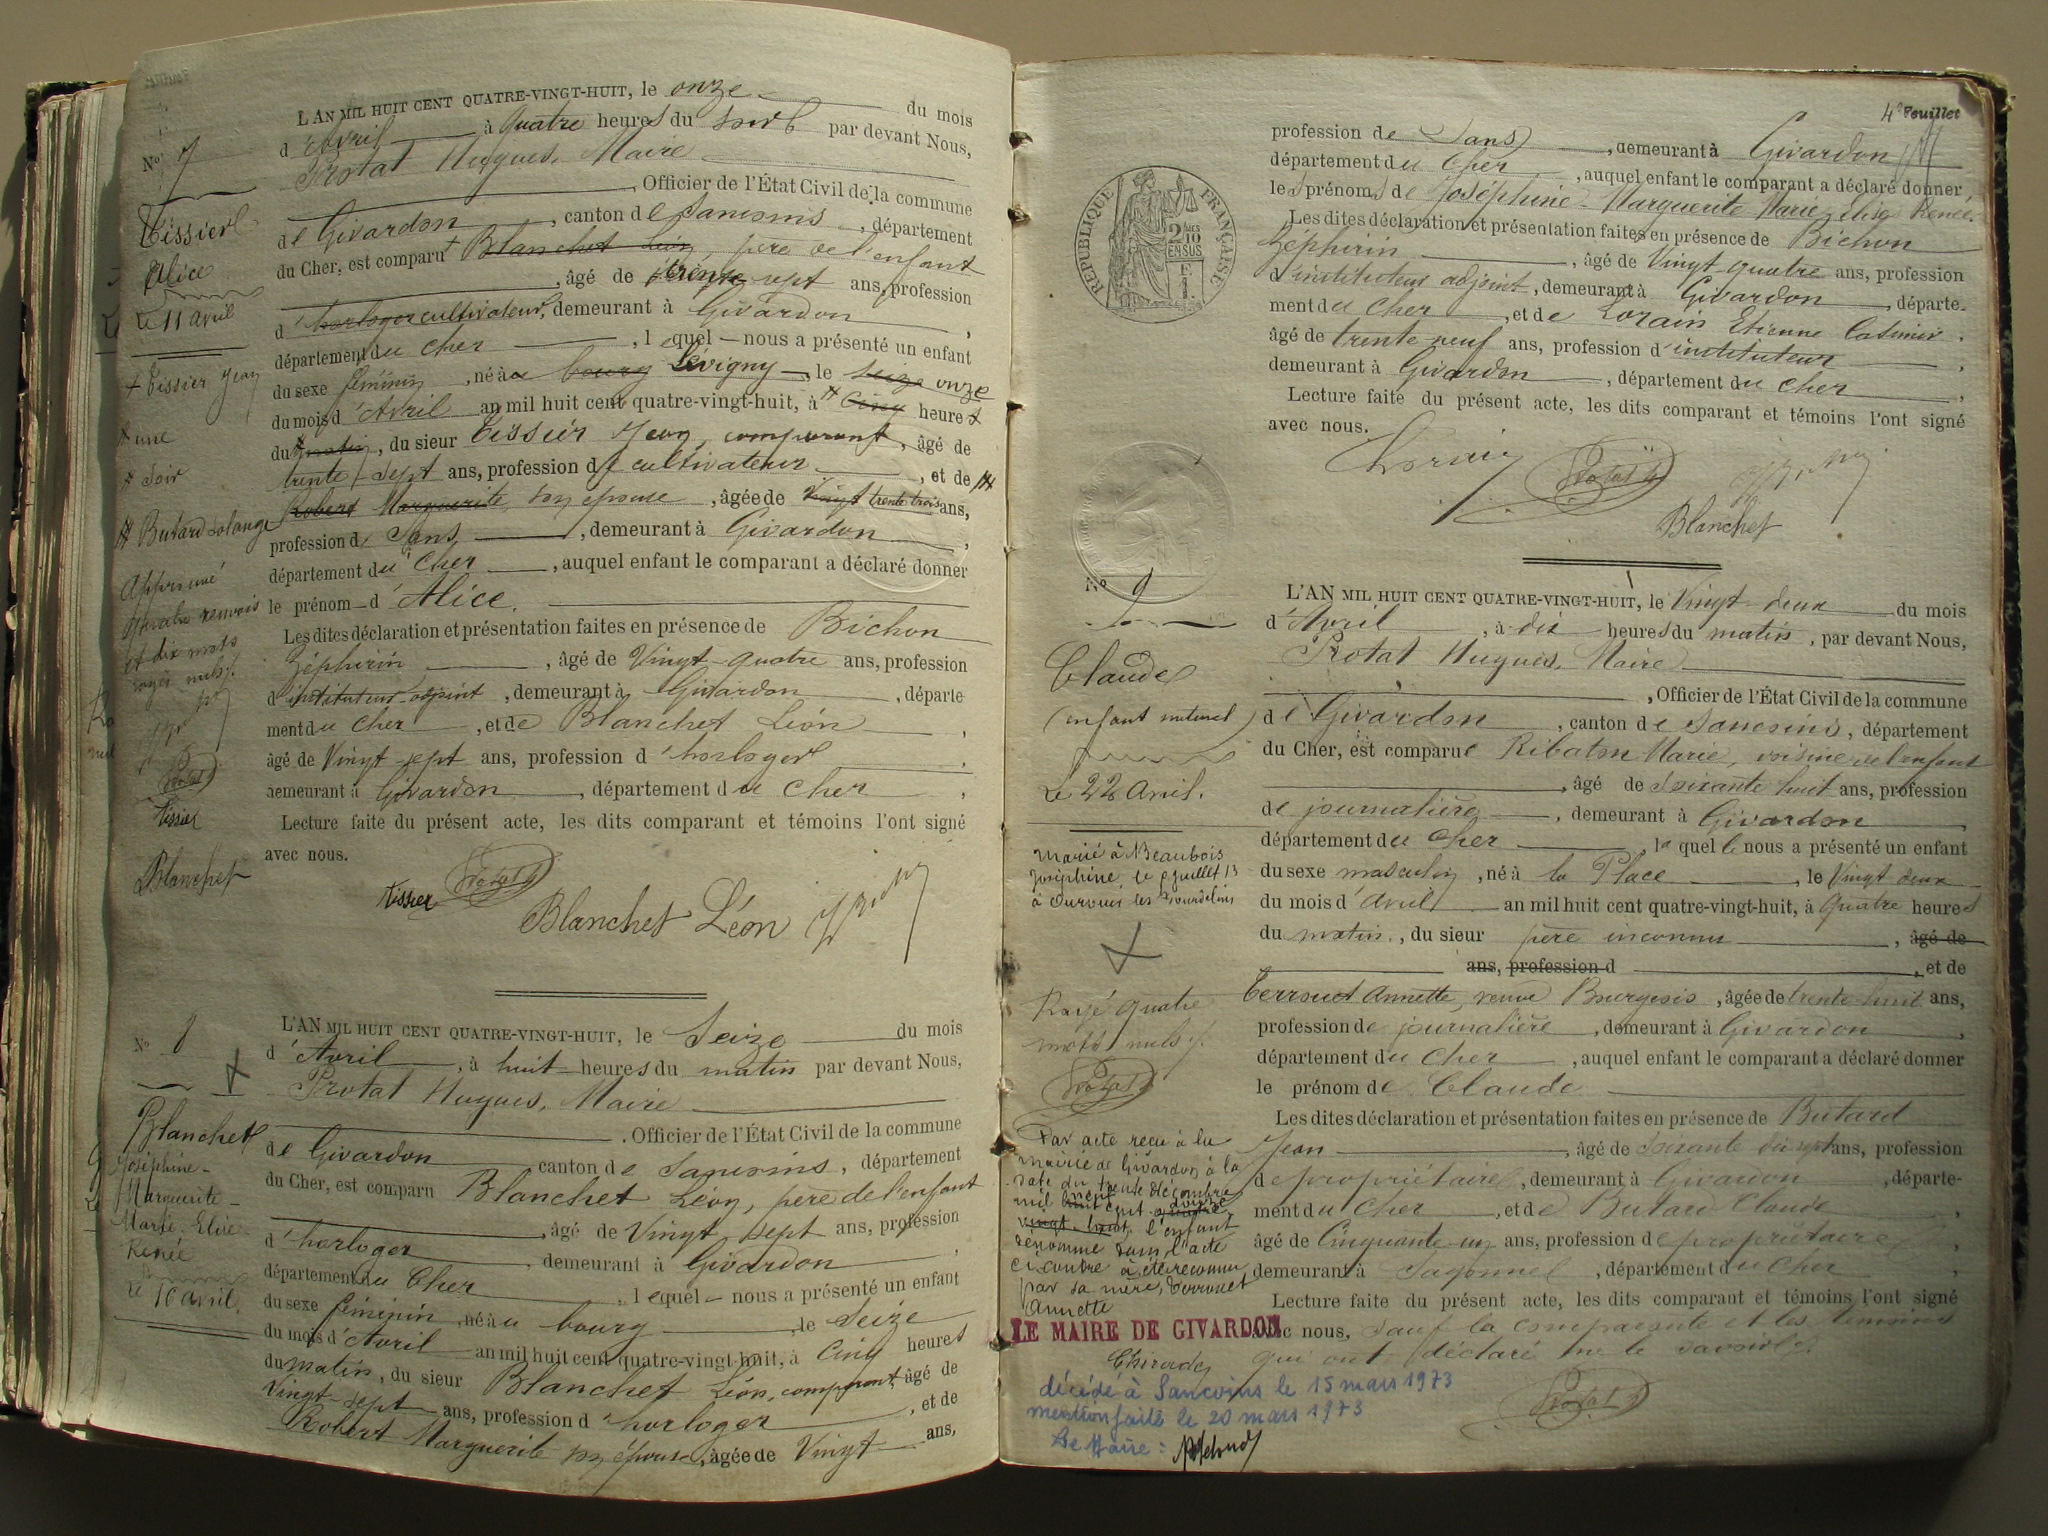 L'AN MIL HUIT CENT QUATRE-VINGT-HUIT, le onze du mois
d'Avril à quatre heures du soir par devant Nous,
Protat Hugues, Maire
Officier de l'État Civil de la commune
de Givardon, canton de Sancoins, département
du Cher, est comparu + Blanchet Léon, père de l'enfant
, âgé de trente sept ans, profession
d'horloger cultivateur, demeurant à Givardon,
département du Cher, lequel nous a présenté un enfant
du sexe féminin, né à au bourg Lévigny, le seize onze
du mois d'Avril an mil huit cent quatre-vingt-huit, à cinq heures
du matin, du sieur Tissier Jean, comparant, âgé de
trente-sept ans, profession de cultivateur, et de
Robert Marguerite son épouse, âgée de Vingt trente trois ans,
profession de Sans, demeurant à Givardon,
département du Cher, auquel enfant le comparant a déclaré donner
le prénom d'Alice.
Les dites déclaration et présentation faites en présence de Bichon
Zéphirin, âgé de Vingt-quatre ans, profession
d'instituteur adjoint, demeurant à Givardon, départe
ment du Cher, et de Blanchet Léon,
âgé de Vingt sept ans, profession d'horloger,
demeurant à Givardon, département du Cher,
Lecture faite du présent acte, les dits comparant et témoins l'ont signé
avec nous.
Tissier Protat
Blanchet Léon
No 7
Tissier
Alice
Le 11 avril
+ Tissier Jean
une
soir
Butard Solange
Approuvé
quatre renvois
et dix mots
rayés nuls
Protat
Tissier
Blanchet
L'AN MIL HUIT CENT QUATRE-VINGT-HUIT, le Seize du mois
d'Avril, à huit heures du matin par devant Nous,
Protat Hugues, Maire
Officier de l'État Civil de la commune
de Givardon canton de Sancoins, département
du Cher, est comparu Blanchet Léon, père de l'enfant
âgé de Vingt sept ans, profession
d'horloger demeurant à Givardon,
département du Cher, lequel nous a présenté un enfant
du sexe féminin, né au bourg, le Seize
du mois d'Avril an mil huit cent quatre-vingt-huit, à Cinq heures
du matin, du sieur Blanchet Léon, comparant, âgé de
Vingt-sept ans, profession d'horloger, et de
Robert Marguerite son épouse, âgée de Vingt ans,
No 8
Blanchet
Joséphine-
Marguerite-
Marie, Elise
Renée
Le 16 avril.
4e Feuillet
profession de Sans, demeurant à Givardon
département du Cher, auquel enfant le comparant a déclaré donner
les prénoms de Joséphine-Marguerite Marie, Elise Renée.
Les dites déclaration et présentation faites en présence de Bichon
Zéphirin, âgé de Vingt quatre ans, profession
d'instituteur adjoint, demeurant à Givardon, départe-
ment du Cher, et de Lorain Etienne Casimir,
âgé de trente neuf ans, profession d'instituteur,
demeurant à Givardon, département du Cher,
Lecture faite du présent acte, les dits comparant et témoins l'ont signé
avec nous.
Lorain Protat
Blanchet
RÉPUBLIQUE FRANÇAISE
2/10 EN SUS
L'AN MIL HUIT CENT QUATRE-VINGT-HUIT, le Vingt-deux du mois
d'Avril, à dix heures du matin, par devant Nous,
Protat Hugues, Maire
, Officier de l'État Civil de la commune
de Givardon, canton de Sancoins, département
du Cher, est comparue Ribaton Marie, voisine de l'enfant
, âgé de Soixante huit ans, profession
de journalière, demeurant à Givardon
département du Cher, laquelle nous a présenté un enfant
du sexe masculin, né à la Place, le Vingt deux
du mois d'Avril an mil huit cent quatre-vingt-huit, à quatre heures
du matin, du sieur père inconnu, âgé de
ans, profession d, et de
Terrouet Annette, veuve Bourgeois, âgée de trente huit ans,
profession de journalière, demeurant à Givardon,
département du Cher, auquel enfant le comparant a déclaré donner
le prénom de Claude
Les dites déclaration et présentation faites en présence de Butard
Jean, âgé de soixante dix sept ans, profession
de propriétaire, demeurant à Givardon, départe-
ment du Cher, et de Butard Claude,
âgé de Cinquante-un ans, profession de propriétaire,
demeurant à Sagonne, département du Cher,
Lecture faite du présent acte, les dits comparant et témoins l'ont signé
avec nous, sauf la comparante et les témoins
qui ont déclaré ne le savoir.
Protat
No 9
Claude
(enfant naturel)
Le 22 Avril.
Marié à Beaubois
Joséphine, le juillet 13
à
Rayé quatre
mots nuls
Protat
Par acte reçu à la
mairie de Givardon à la
date du trente décembre
mil huit neuf cent quatre
vingt-huit, l'enfant
dénommé dans l'acte
ci contre a été reconnu
par sa mère, Terrouet
Annette
LE MAIRE DE GIVARDON
décédé à Sancoins le 15 mars 1973
mention faite le 20 mars 1973
Le Maire :